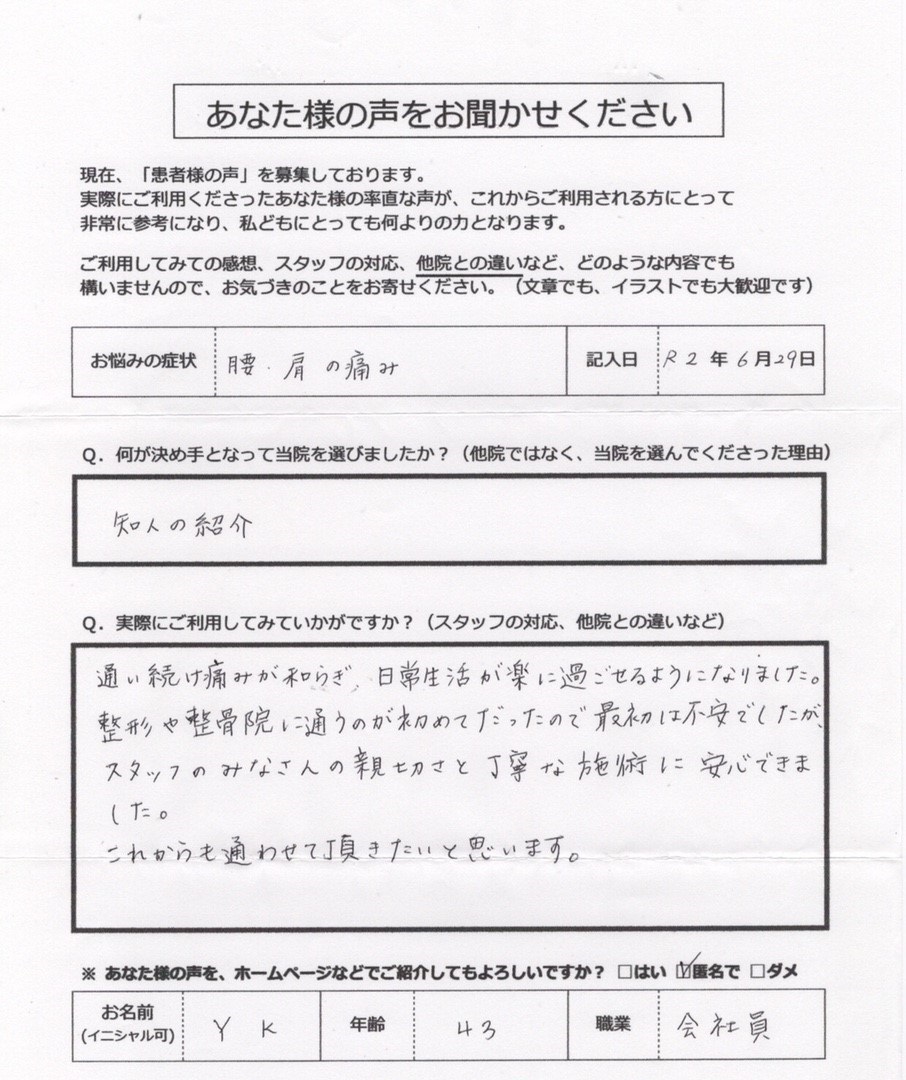 あなた様の声をお聞かせください
現在、「患者様の声」を募集しております。
実際にご利用くださったあなた様の率直な声が、これからご利用される方にとって
非常に参考になり、私どもにとっても何よりの力となります。
ご利用してみての感想、スタッフの対応、他院との違いなど、どのような内容でも
構いませんので、お気づきのことをお寄せください。（文章でも、イラストでも大歓迎です）
お悩みの症状 腰・肩の痛み 記入日 R2年6月29日
Q．何が決め手となって当院を選びましたか？（他院ではなく、当院を選んでくださった理由）
知人の紹介
Q．実際にご利用してみていかがですか？（スタッフの対応、他院との違いなど）
通い続け痛みが和らぎ、日常生活が楽に過ごせるようになりました。
整形や整骨院に通うのが初めてだったので最初は不安でしたが、
スタッフのみなさんの親切さと丁寧な施術に安心できま
した。
これからも通わせて頂きたいと思います。
※ あなた様の声を、ホームページなどでご紹介してもよろしいですか？ □はい ☑匿名で □ダメ
お名前 (イニシャル可) Y K 年齢 43 職業 会社員